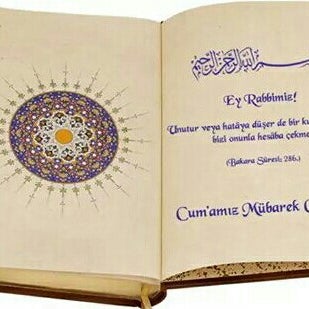 بسم الله الرحمن الرحيم
Ey Rabbimiz!
Unutur veya hatâya düşer de bir ku
bizi onunla hesâba çekme
(Bakara Sûresi; 286.)
Cum'amız Mübarek